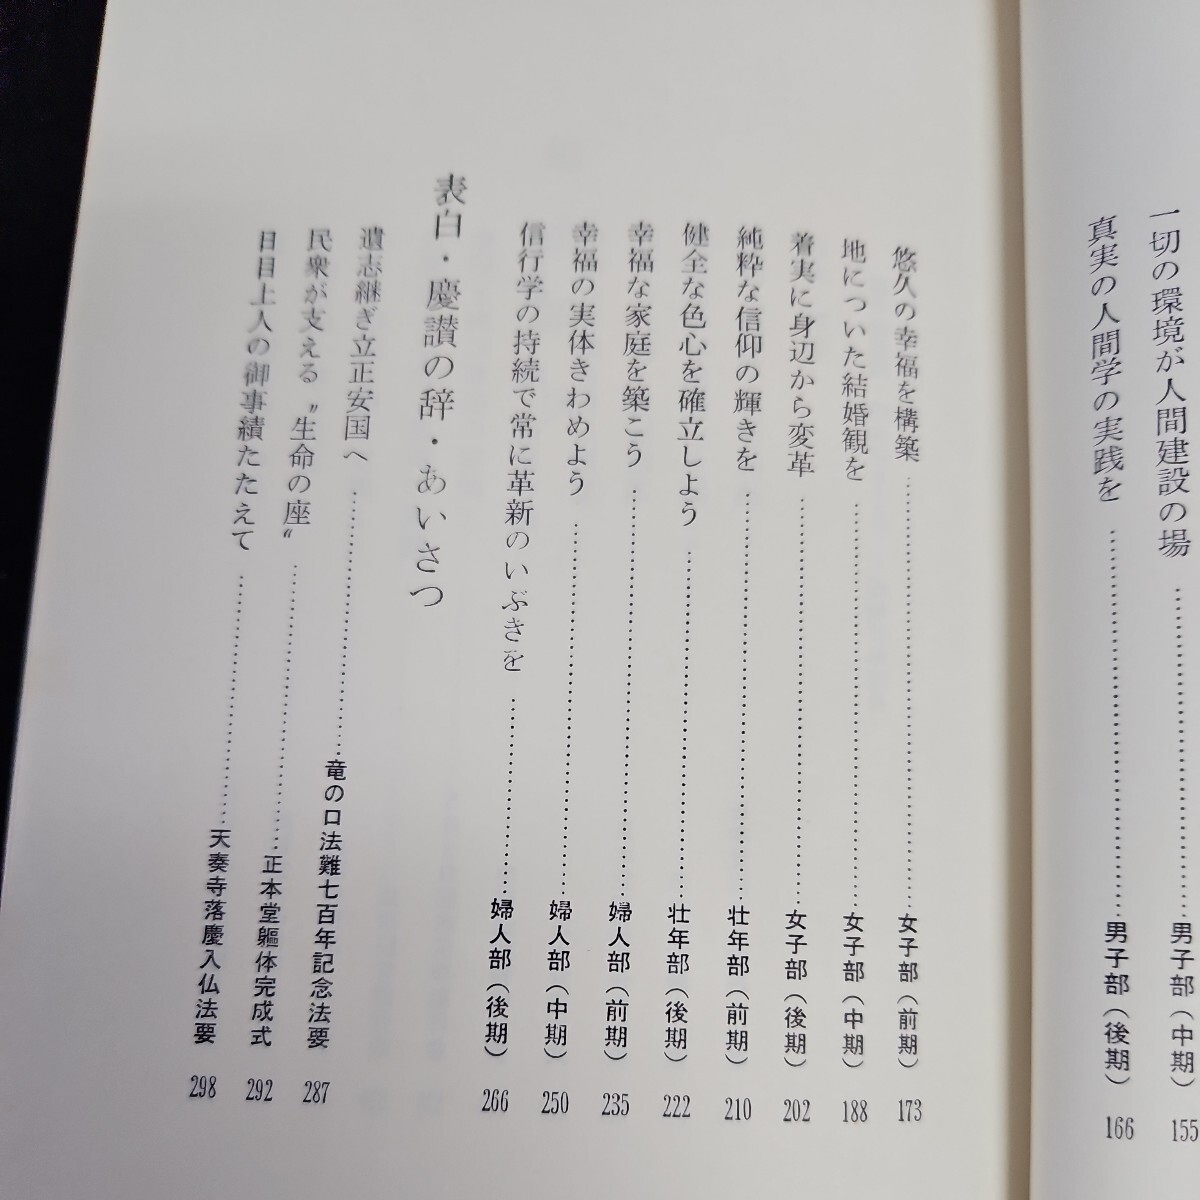 一切の環境が人間建設の場……男子部（中期）155
真実の人間学の実践を……男子部（後期）166
悠久の幸福を構築……女子部（前期）173
地についた結婚観を……女子部（中期）188
着実に身辺から変革……女子部（後期）202
純粋な信仰の輝きを……壮年部（前期）210
健全な色心を確立しよう……壮年部（後期）222
幸福な家庭を築こう……婦人部（前期）235
幸福の実体きわめよう……婦人部（中期）250
信行学の持続で常に革新のいぶきを……婦人部（後期）266
表白・慶讃の辞・あいさつ
遺志継ぎ立正安国へ……竜の口法難七百年記念法要 287
民衆が支える〝生命の座〟……正本堂軀体完成式 292
日目上人の御事績たたえて……天奏寺落慶入仏法要 298